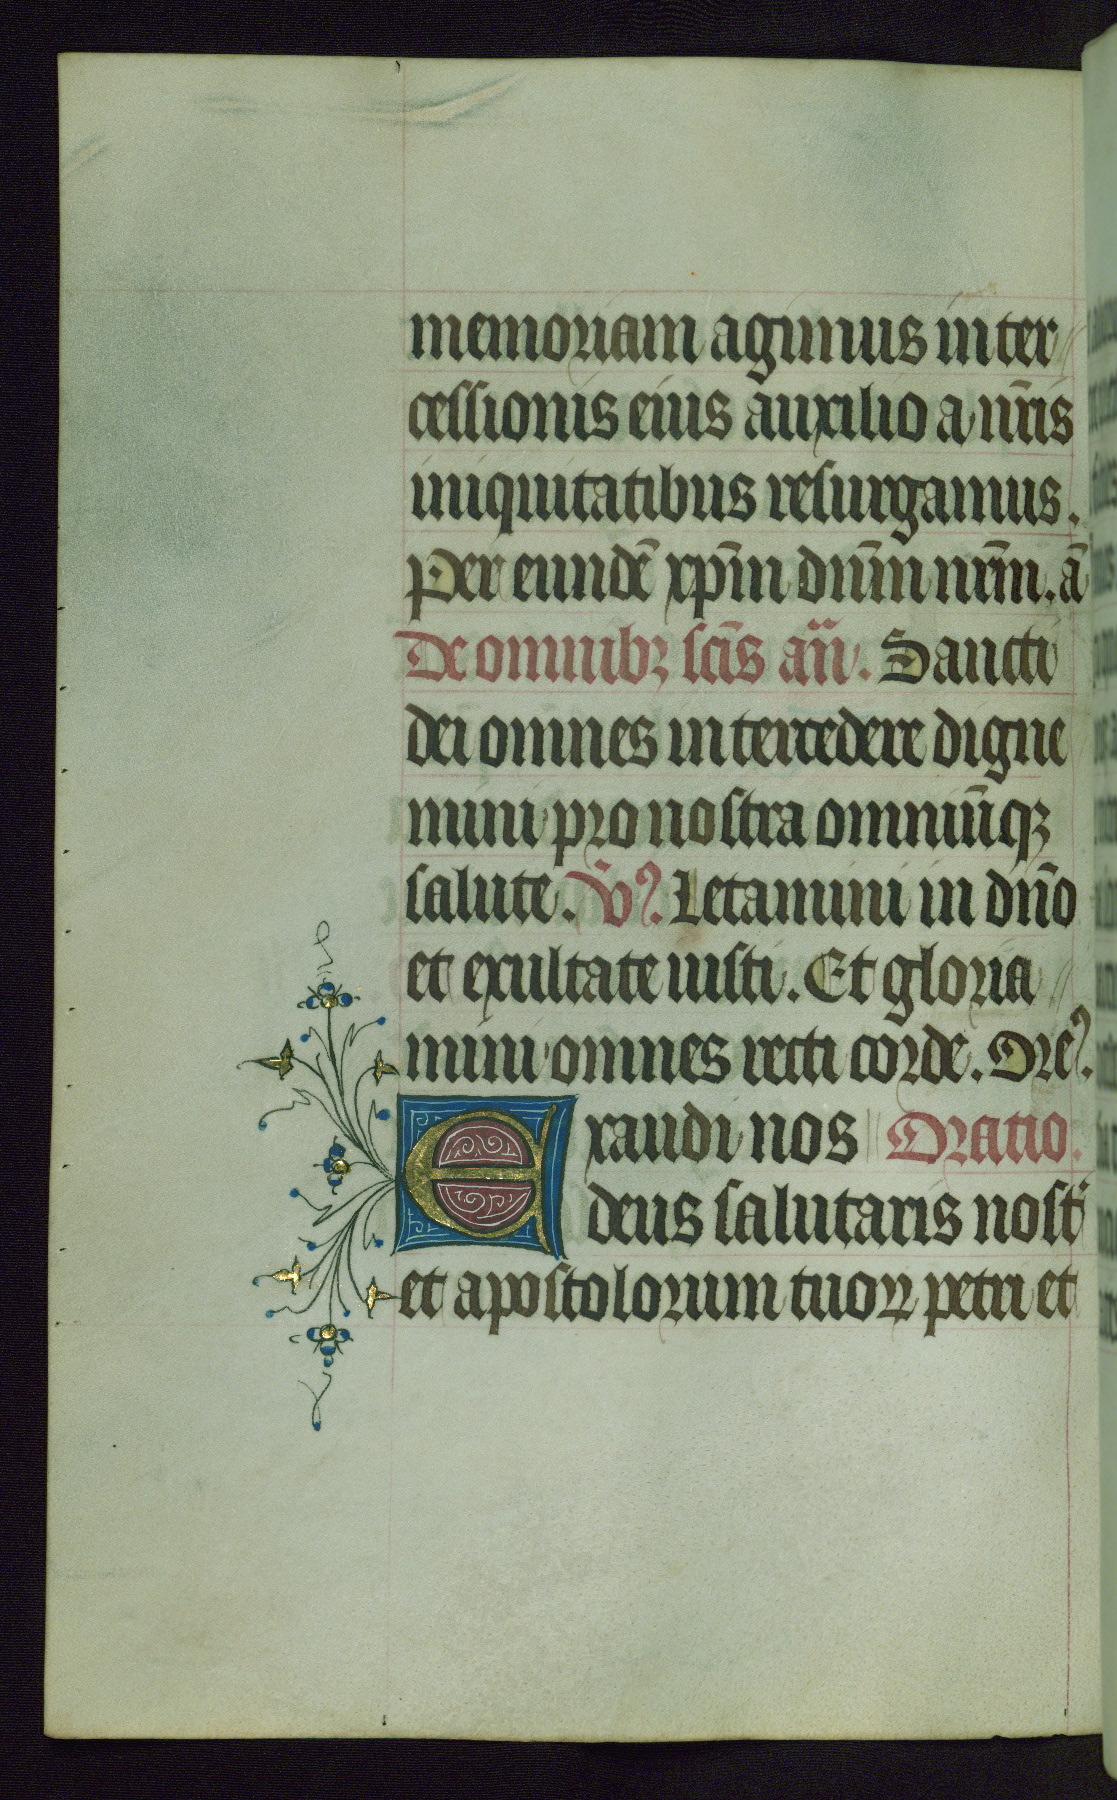 memoriam agimus inter
cessionis eius auxilio a nr̃is
iniquitatibus resurgamus.
Per eundẽ xp̃m dñm nrm̃. ã
De omnibꝫ scĩs añ. Sancti
dei omnes intercedere digne
mini pro nostra omniũqꝫ
salute. V̉. Letamini in dño
et exultate iusti. Et gloria
mini omnes recti corde. Orẽ.
Exaudi nos Oratio.
deus salutaris nost̃
et apostolorum tuoꝝ petri et